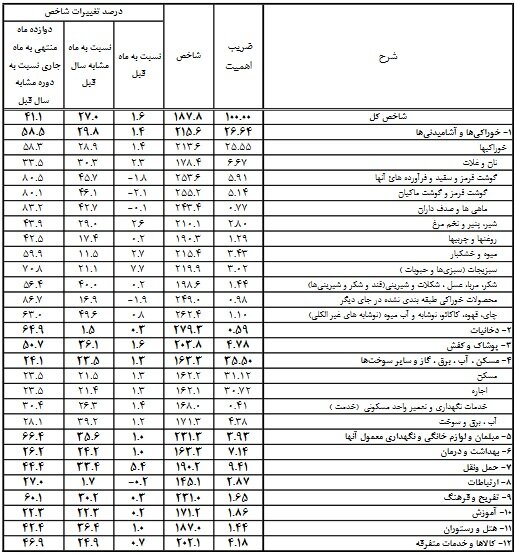 شرح ضریب اهمیت شاخص درصد تغییرات شاخص
نسبت به ماه قبل نسبت به ماه مشابه سال قبل دوازده ماه منتهی به ماه جاری نسبت به دوره مشابه سال قبل
شاخص کل ۱۰۰.۰۰ ۱۸۷.۸ ۱.۶ ۲۷.۰ ۴۱.۱
۱- خوراکی‌ها و آشامیدنی‌ها ۲۶.۶۴ ۲۱۵.۶ ۱.۴ ۲۹.۸ ۵۸.۵
خوراکیها ۲۵.۵۵ ۲۱۳.۶ ۱.۴ ۲۸.۹ ۵۸.۳
نان و غلات ۶.۶۷ ۱۷۸.۴ ۲.۳ ۳۰.۳ ۳۳.۵
گوشت قرمز و سفید و فرآورده های آنها ۵.۹۱ ۲۵۳.۶ -۱.۸ ۴۵.۷ ۸۰.۵
گوشت قرمز و گوشت ماکیان ۵.۱۴ ۲۵۵.۲ -۲.۱ ۴۶.۱ ۸۰.۱
ماهی ها و صدف داران ۰.۷۷ ۲۴۳.۴ -۰.۱ ۴۲.۷ ۸۳.۲
شیر، پنیر و تخم مرغ ۲.۸۰ ۲۱۰.۱ ۲.۶ ۲۹.۰ ۴۳.۹
روغنها و چربیها ۱.۲۹ ۱۹۰.۳ ۰.۲ ۱۷.۴ ۴۲.۵
میوه و خشکبار ۳.۴۳ ۲۱۵.۴ ۲.۷ ۱۱.۵ ۵۹.۹
سبزیجات (سبزی‌ها و حبوبات) ۳.۰۲ ۲۱۹.۹ ۷.۷ ۲۱.۱ ۷۰.۸
شکر، مربا، عسل ، شکلات و شیرینی(قند و شکر و شیرینی‌ها) ۱.۴۴ ۱۹۸.۶ ۰.۲ ۴۰.۰ ۵۶.۴
محصولات خوراکی طبقه بندی نشده در جای دیگر ۰.۹۸ ۲۴۹.۰ -۱.۹ ۱۶.۹ ۸۶.۷
چای، قهوه، کاکائو، نوشابه و آب میوه (نوشابه های غیر الکلی) ۱.۱۰ ۲۶۲.۴ ۰.۸ ۴۹.۶ ۶۳.۰
۲- دخانیات ۰.۵۹ ۲۷۹.۳ ۰.۳ ۱.۵ ۶۴.۹
۳- پوشاک و کفش ۴.۷۸ ۲۰۳.۸ ۱.۶ ۳۶.۱ ۵۰.۷
۴- مسکن ، آب ، برق ، گاز و سایر سوخت‌ها ۳۵.۵۰ ۱۶۳.۳ ۱.۳ ۲۳.۵ ۲۴.۱
مسکن ۳۱.۱۲ ۱۶۲.۲ ۱.۳ ۲۱.۵ ۲۳.۵
اجاره ۳۰.۷۲ ۱۶۲.۱ ۱.۳ ۲۱.۴ ۲۳.۵
خدمات نگهداری و تعمیر واحد مسکونی (خدمت) ۰.۴۱ ۱۶۸.۰ ۱.۴ ۲۶.۳ ۳۰.۴
آب ، برق و سوخت ۴.۳۸ ۱۷۱.۳ ۱.۲ ۳۹.۲ ۲۸.۱
۵- مبلمان و لوازم خانگی و نگهداری معمول آنها ۳.۹۳ ۲۳۱.۳ ۱.۰ ۳۵.۶ ۶۶.۴
۶- بهداشت و درمان ۷.۱۴ ۱۶۳.۳ ۱.۰ ۲۴.۲ ۲۶.۲
۷- حمل ونقل ۹.۴۱ ۱۹۰.۲ ۵.۴ ۳۳.۴ ۴۴.۴
۸- ارتباطات ۲.۸۷ ۱۴۵.۱ -۰.۲ ۱.۷ ۲۷.۰
۹- تفریح و فرهنگ ۱.۶۵ ۲۲۱.۰ ۰.۳ ۳۰.۲ ۶۰.۱
۱۰- آموزش ۱.۸۶ ۱۷۱.۲ ۰.۲ ۲۲.۳ ۲۲.۳
۱۱- هتل و رستوران ۱.۴۴ ۱۸۷.۰ ۱.۰ ۳۶.۴ ۴۲.۴
۱۲- کالاها و خدمات متفرقه ۴.۱۸ ۲۰۲.۱ ۰.۷ ۲۴.۹ ۴۶.۹